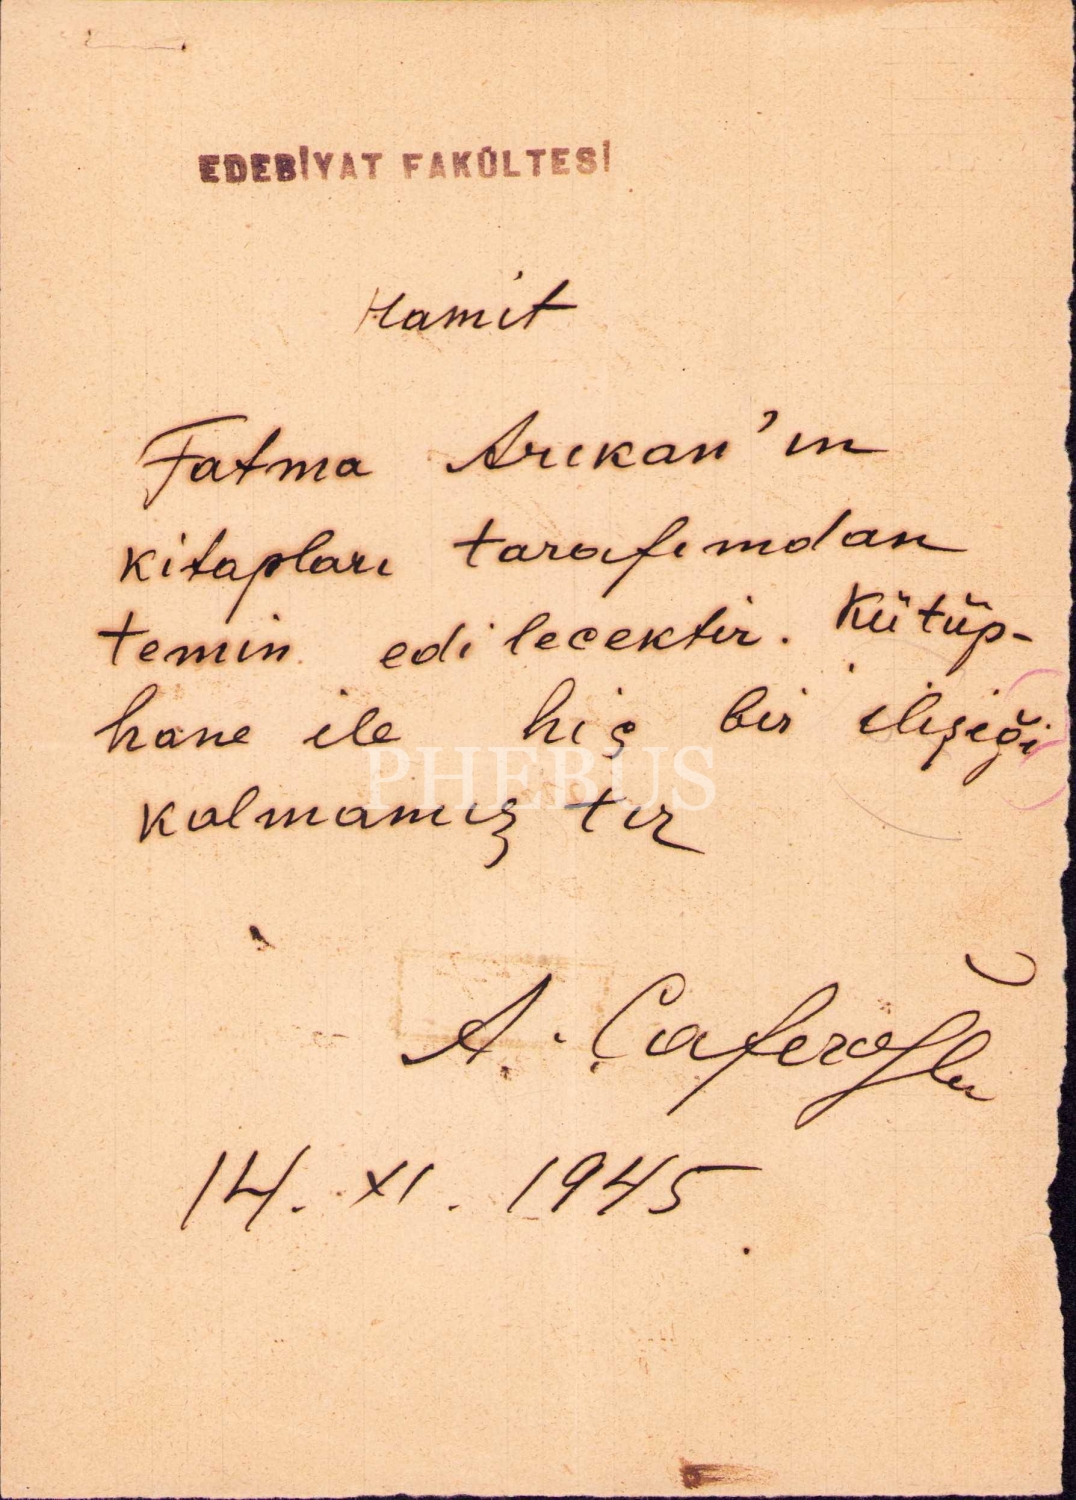 EDEBİYAT FAKÜLTESİ
Hamit
Fatma Arıkan'ın
kitapları tarafımdan
temin edilecektir. Kütüp-
hane ile hiç bir ilişiği
kalmamıştır
PHEBUS
A. Caferoğlu
14. XI. 1945